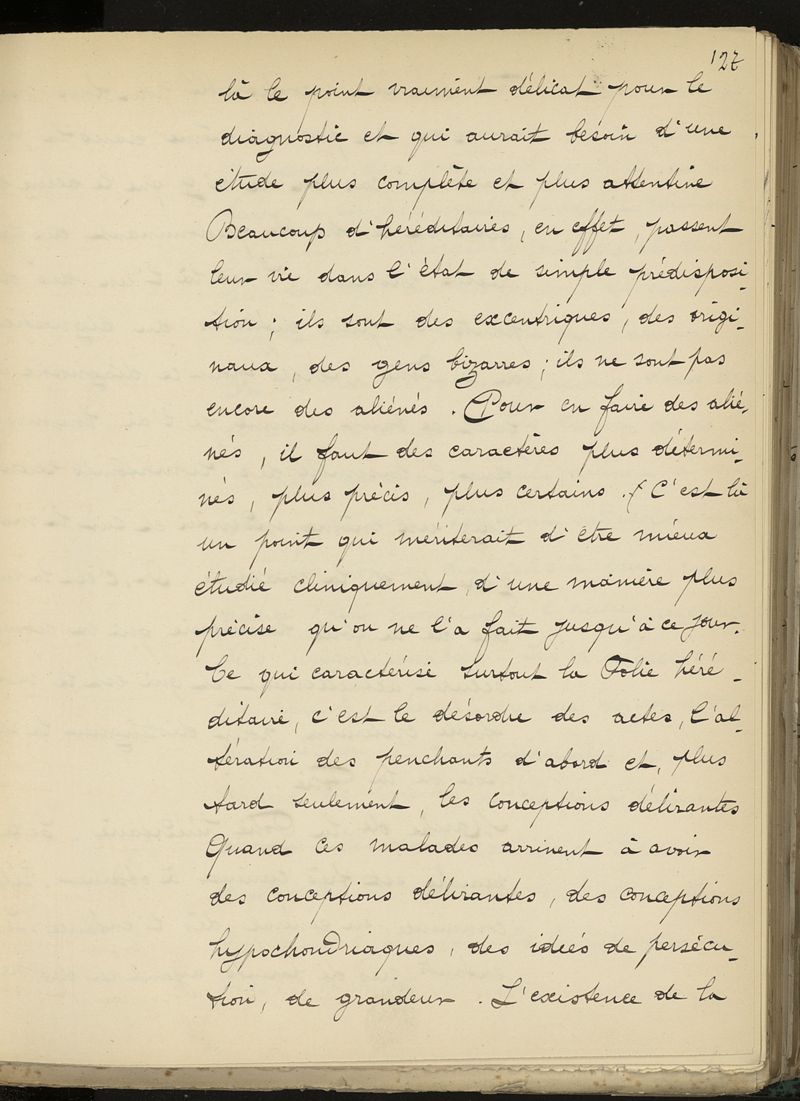 127
là le point vraiment délicat pour le
diagnostic et qui aurait besoin d'une
étude plus complète et plus attentive
Beaucoup d'héréditaires, en effet, passent
leur vie dans l'état de simple prédisposi-
tion ; ils sont des excentriques, des origi-
naux, des gens bizarres ; ils ne sont pas
encore des aliénés. Pour en faire des alié-
nés, il faut des caractères plus détermi-
nés, plus précis, plus certains. C'est là
un point qui mériterait d'être mieux
étudié cliniquement, d'une manière plus
précise qu'on ne l'a fait jusqu'à ce jour.
Ce qui caractérise surtout la Folie héré-
ditaire, c'est le désordre des actes, l'al-
tération des penchants d'abord et, plus
tard seulement, les conceptions délirantes
Quand ces malades arrivent à avoir
des conceptions délirantes, des conceptions
hypochondriaques, des idées de persécu-
tion, de grandeur. L'existence de la